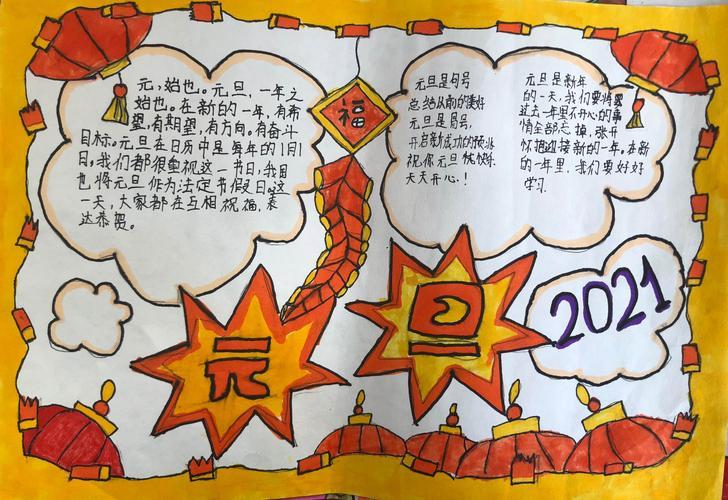 元，始也。元旦，一年之
始也。在新的一年，有希
望，有期望，有方向。有奋斗
目标。元旦在日历中是每年的1月1
日。我们都很重视这一节日，我国
也将元旦作为法定节假日。这
一天，大家都在互相祝福，表
达恭贺。
福
元旦是句号
总结从前的美好
元旦是冒号，
开启新成功的预兆
祝你元旦愉快
天天开心！
元旦是新年
的一天，我们要将
过去一年里不开心的事
情全部忘掉，张开
怀抱迎接新的一年。在新
的一年里，我们要好好
学习
元旦
2021